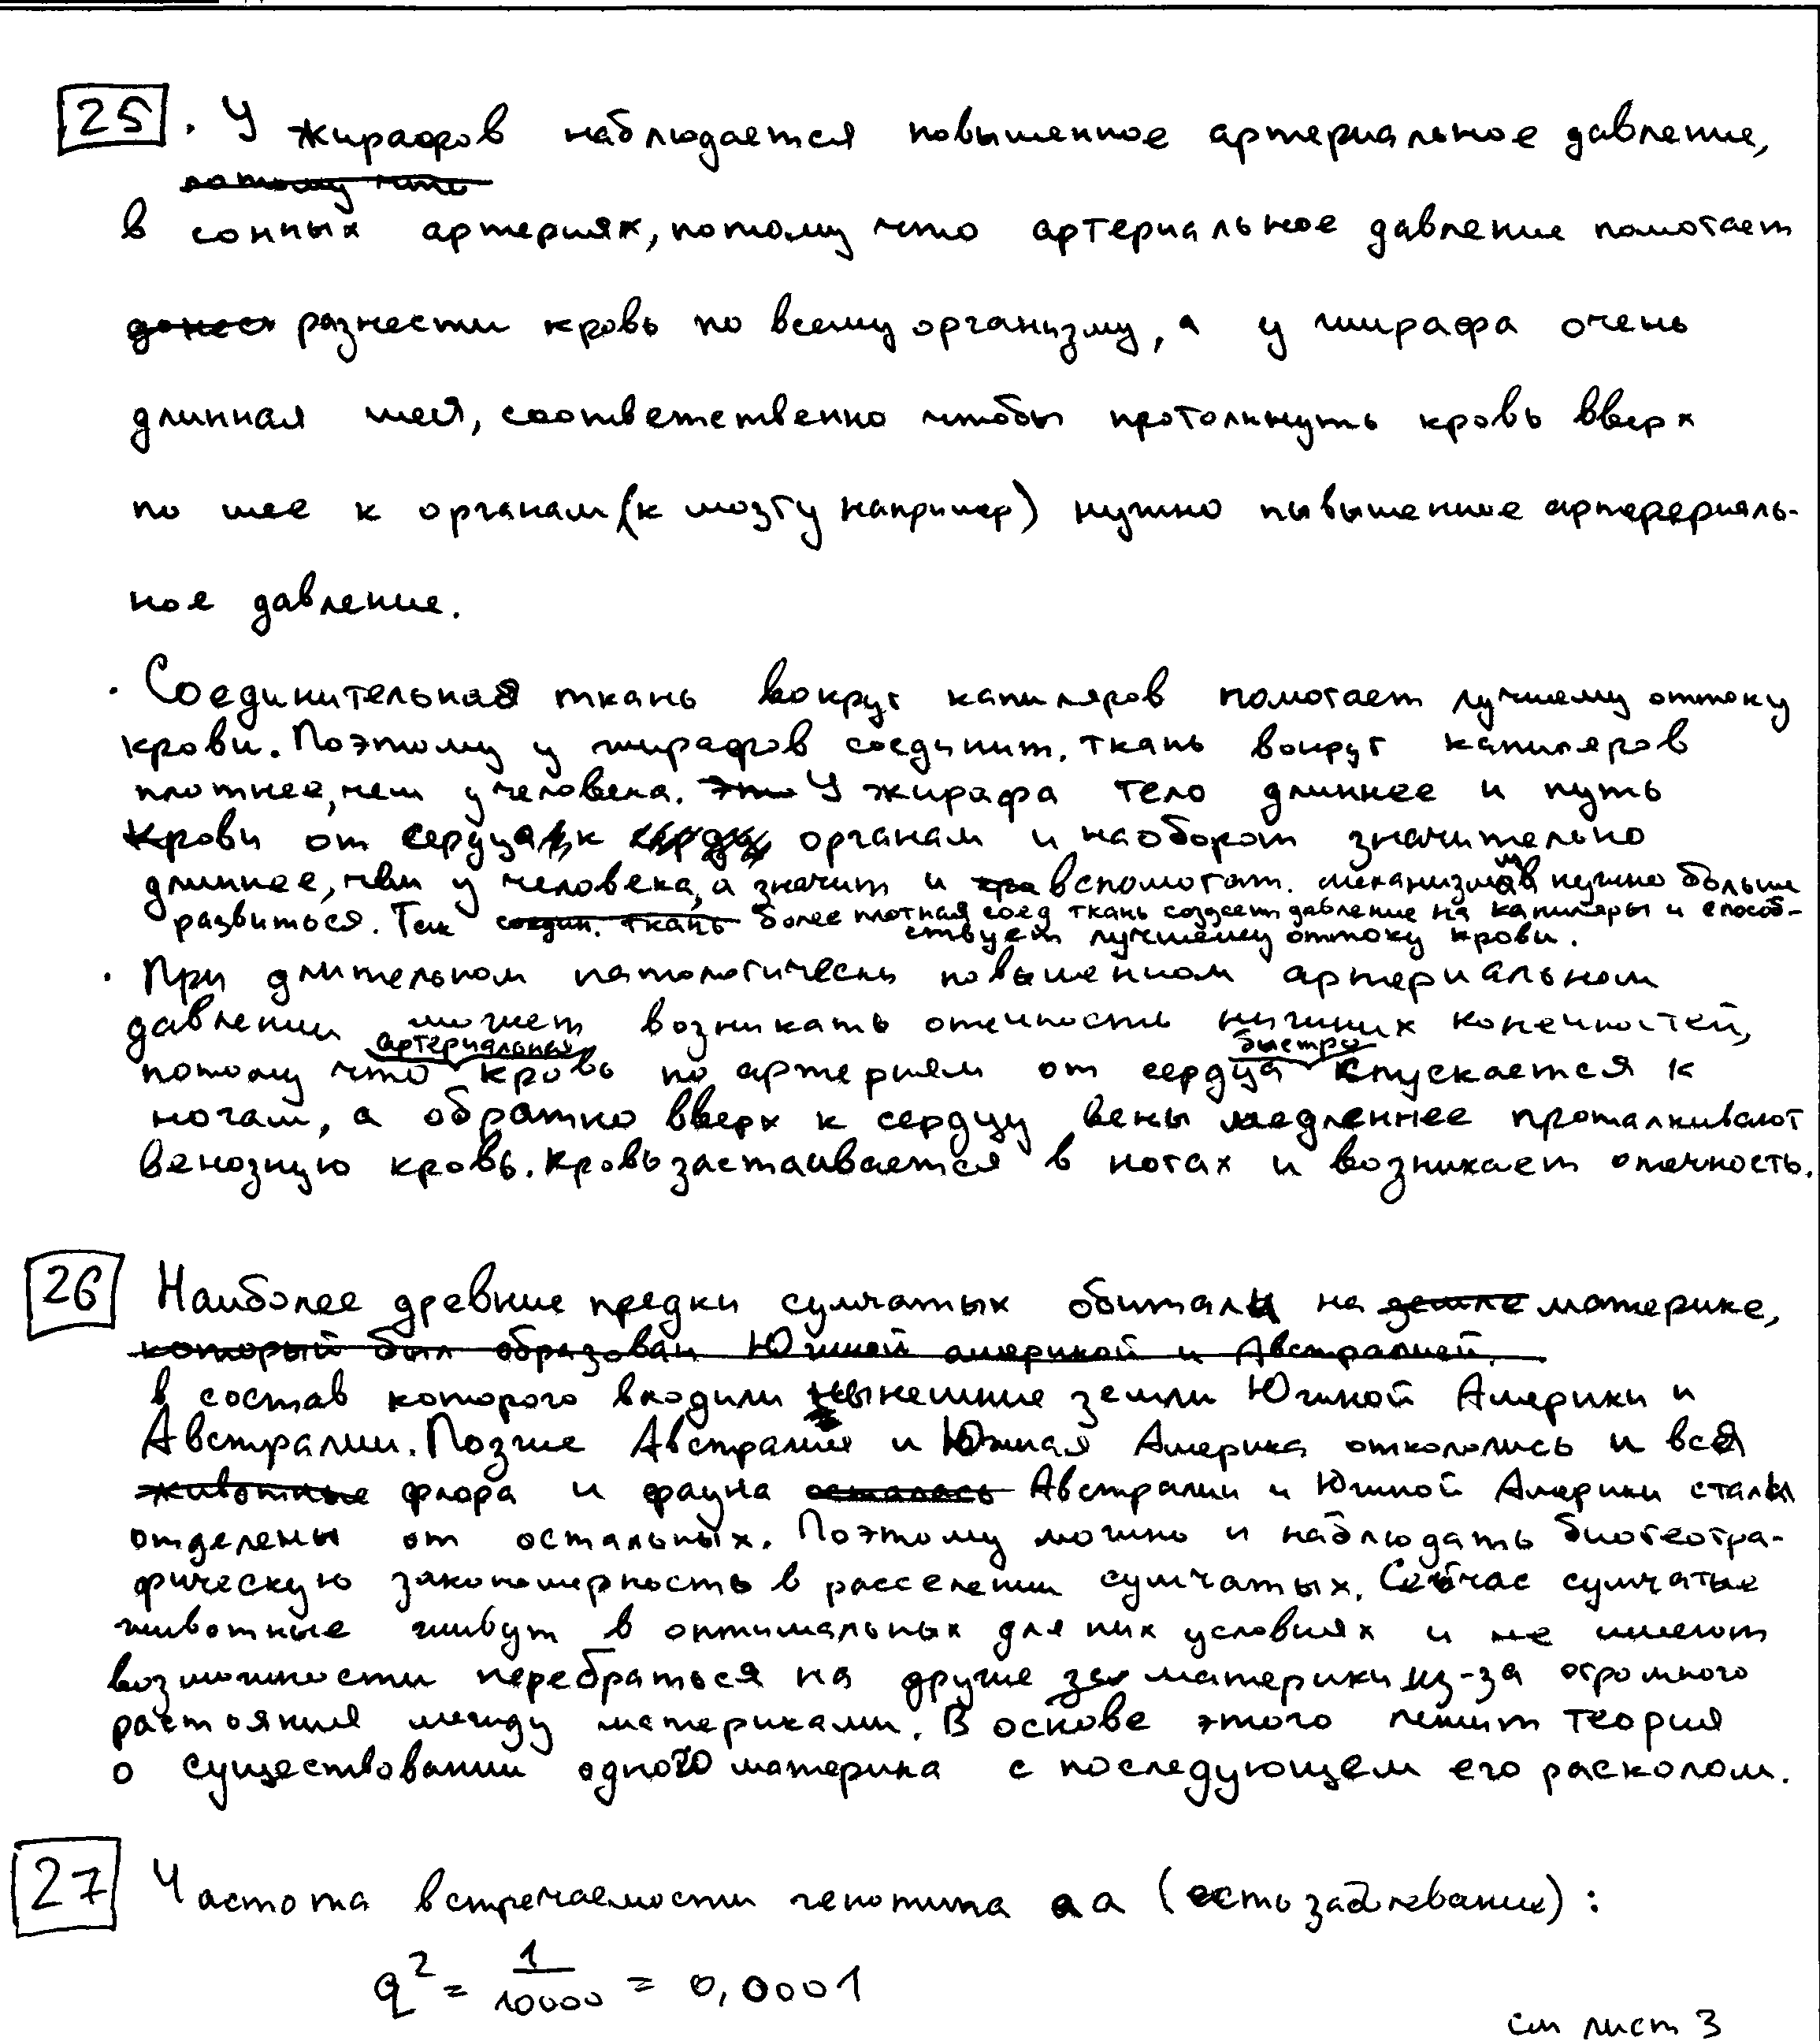 25. У жирафов наблюдается повышенное артериальное давление,
потому что
в сонных артериях, потому что артериальное давление помогает
донест разнести кровь по всему организму, а у жирафа очень
длинная шея, соответственно чтобы протолкнуть кровь вверх
по шее к органам (к мозгу например) нужно пывышенное артерериаль-
ное давление.
· Соединительная ткань вокруг капиляров помогает лучшему оттоку
крови. Поэтому у жирафов соединит. ткань вокруг капиляров
плотнее, чем у человека. Это У жирафа тело длиннее и путь
крови от сердца к органам и наоборот значительно
длиннее, чем у человека, а значит и вспомогат. механизмам нужно больше
развиться. Так соедин. ткань более плотная соед ткань создает давление на капиляры и способ-
ствует лучшему оттоку крови.
· При длительном патологически повышенном артериальном
давлении может возникать отечность нижних конечностей,
артериальная быстро
потому что кровь по артериям от сердца спускается к
ногам, а обратно вверх к сердцу вены медленнее проталкивают
венозную кровь. Кровь застаивается в ногах и возникает отечность.
26 Наиболее древние предки сумчатых обитали на земле материке,
который был образован Южной америкой и Австралией.
в состав которого входили нынешние земли Южной Америки и
Австралии. Позже Австралия и Южная Америка откололись и вся
животные флора и фауна осталась Австралии и Южной Америки стали
отделены от остальных. Поэтому можно и наблюдать биогеогра-
фическую закономерность в расселении сумчатых. Сейчас сумчатые
животные живут в оптимальных для них условиях и не имеют
возможности перебраться на другие материки из-за огромного
растояния между материками. В основе этого лежит теория
о существовании одного материка с последующем его расколом.
27 Частота встречаемости генотипа аа (есть заболевание):
q² = 1/10000 = 0,0001
см лист 3